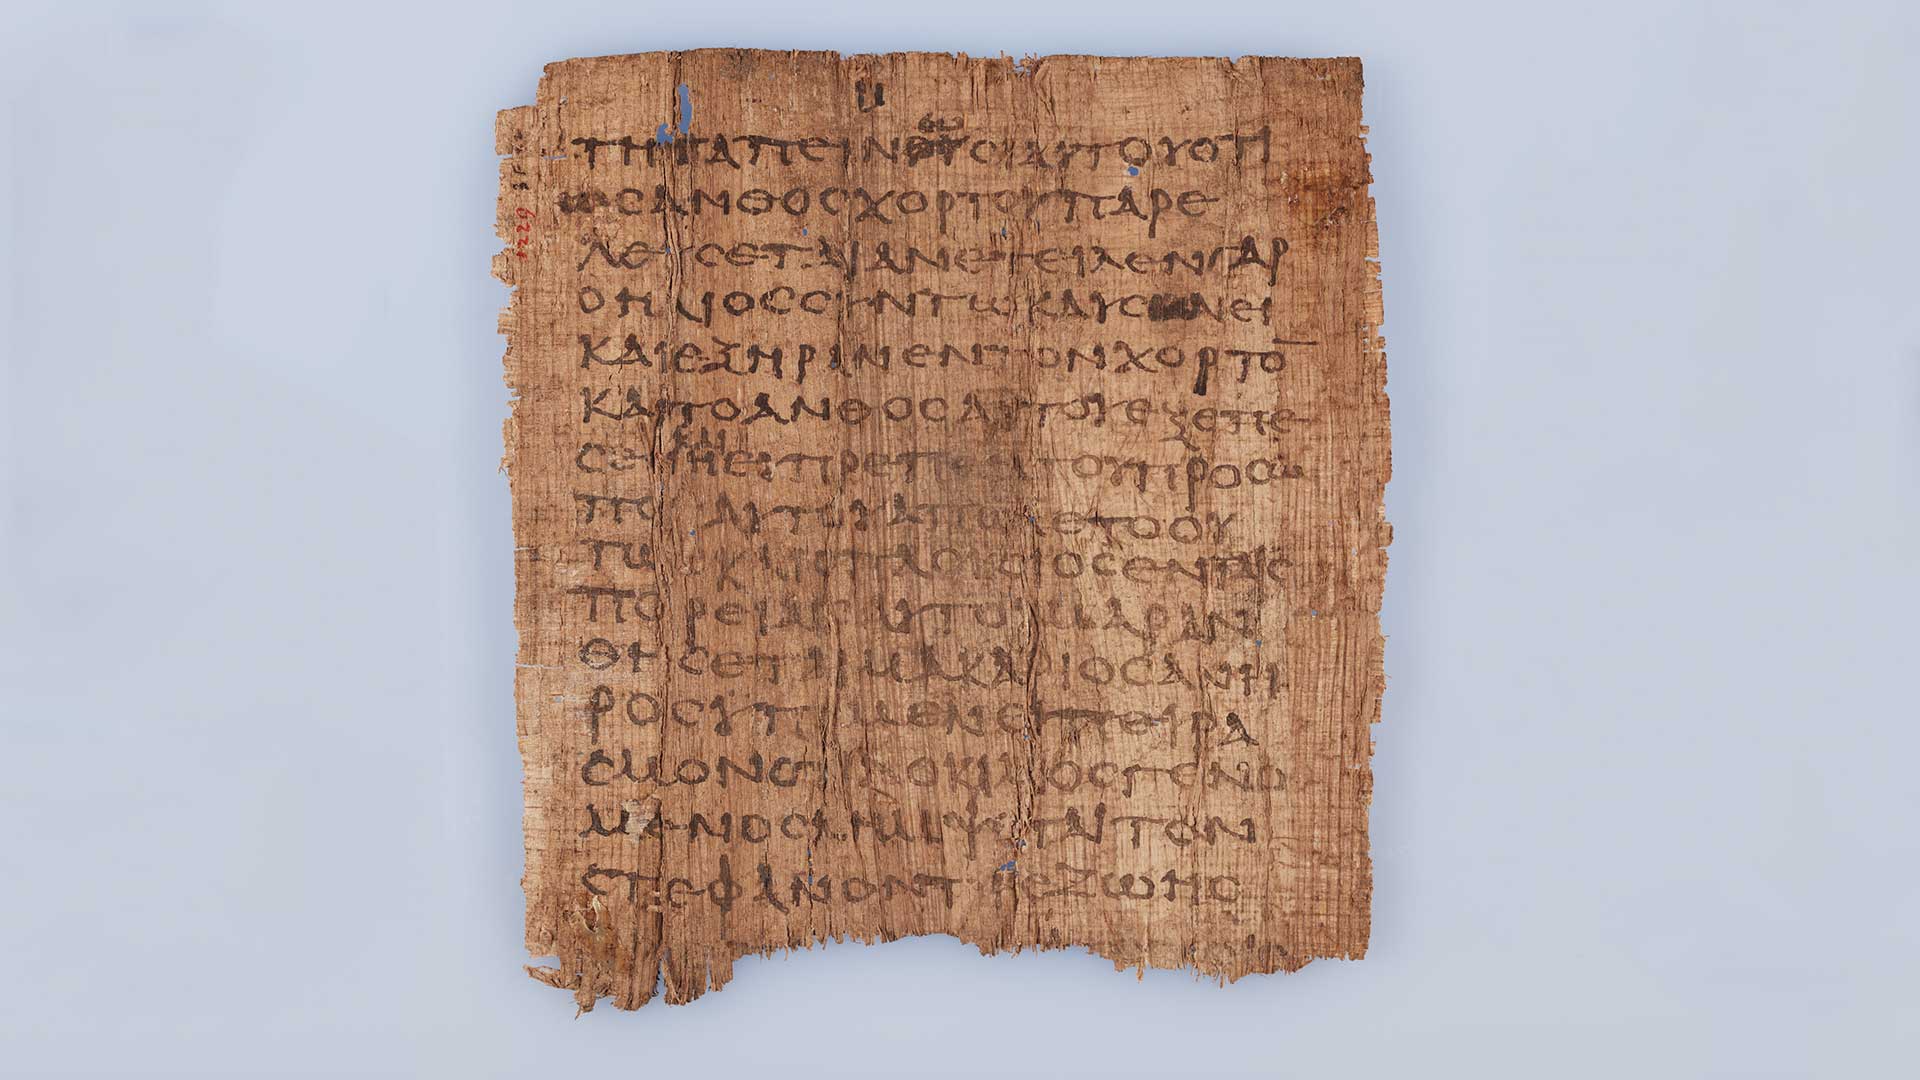 1229
ΤΗΤΑΠΕΙΝΩϹΙΑΥΤΟΥΟΤΙ
ΩϹΑΝΘΟϹΧΟΡΤΟΥΠΑΡΕ
ΛΕΥϹΕΤΑΙΑΝΕΤΕΙΛΕΝΓΑΡ
ΟΗΛΙΟϹϹΥΝΤΩΚΑΥϹΩΝΕΙ
ΚΑΙΕΞΗΡΑΝΕΝΤΟΝΧΟΡΤΟ̅
ΚΑΙΤΟΑΝΘΟϹΑΥΤΟΥΕΞΕΠΕ
ϹΕΝΚΑΙΗΕΥΠΡΕΠΕΙΑΤΟΥΠΡΟϹΩ
ΠΟΥΑΥΤΟΥΑΠΩΛΕΤΟΟΥ
ΤΩϹΚΑΙΟΠΛΟΥϹΙΟϹΕΝΤΑΙϹ
ΠΟΡΕΙΑΙϹΑΥΤΟΥΜΑΡΑΝ
ΘΗϹΕΤΑΙΜΑΚΑΡΙΟϹΑΝΗ
ΡΟϹΥΠΟΜΕΝΕΙΠΕΙΡΑ
ϹΜΟΝΟΤΙΔΟΚΙΜΟϹΓΕΝΟ
ΜΕΝΟϹΛΗΜΨΕΤΑΙΤΟΝ
ϹΤΕΦΑΝΟΝΤΗϹΖΩΗϹΟ